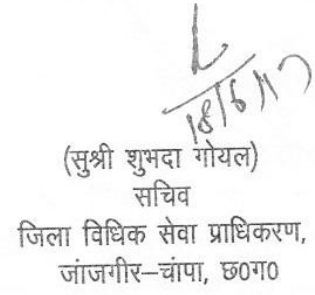 18/6/17
(सुश्री शुभदा गोयल)
सचिव
जिला विधिक सेवा प्राधिकरण,
जांजगीर–चांपा, छ0ग0